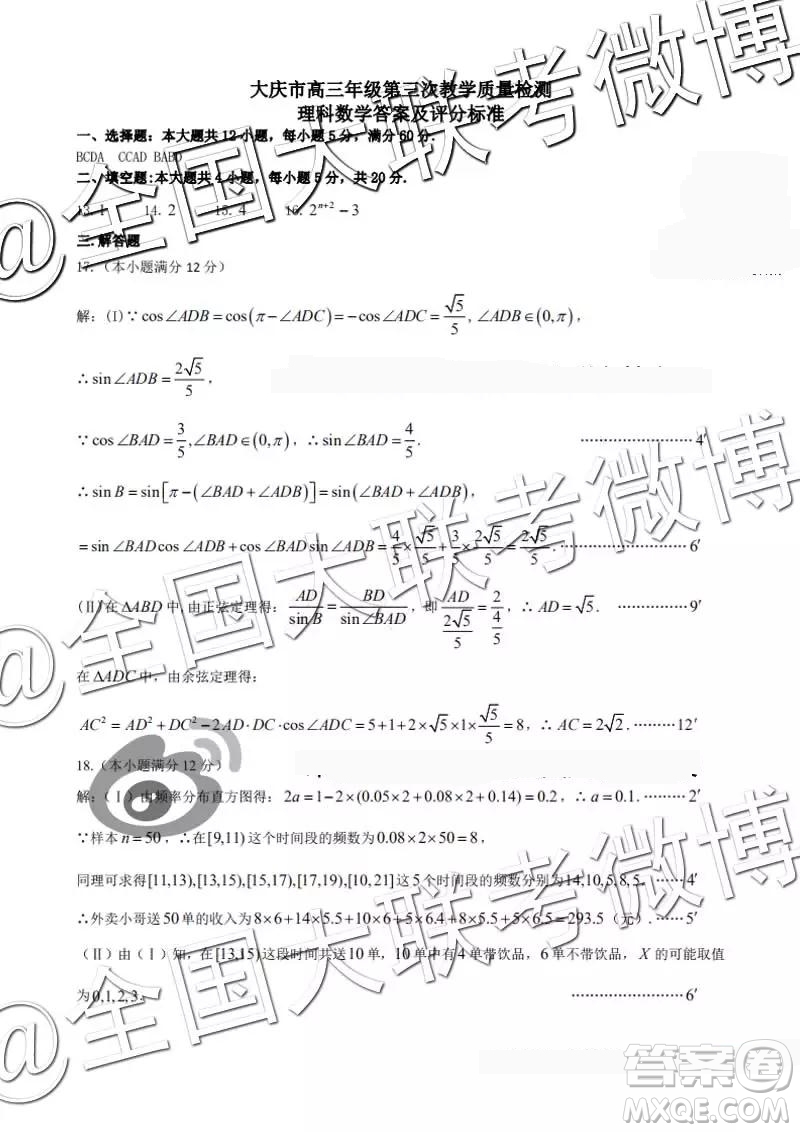 大庆市高三年级第三次教学质量检测
理科数学答案及评分标准
一、选择题：本大题共12小题，每小题5分，满分60分．
BCDA CCAD BABD
二、填空题：本大题共4小题，每小题5分，共20分．
13. 1 14. 2 15. 4 16. 2^{n+2} − 3
三. 解答题
17. （本小题满分12分）
解：(I)∵ cos∠ADB = cos(π − ∠ADC) = −cos∠ADC = √5/5, ∠ADB∈(0,π),
∴ sin∠ADB = 2√5/5,
∵ cos∠BAD = 3/5, ∠BAD∈(0,π), ∴ sin∠BAD = 4/5. ……………………4′
∴ sin B = sin[π − (∠BAD + ∠ADB)] = sin(∠BAD + ∠ADB),
= sin∠BAD cos∠ADB + cos∠BAD sin∠ADB = 4/5 × √5/5 + 3/5 × 2√5/5 = 2√5/5. ………………………6′
(Ⅱ)在ΔABD中, 由正弦定理得：AD/sin B = BD/sin∠BAD, 即 AD/(2√5/5) = 2/(4/5), ∴ AD = √5. ……………9′
在ΔADC中，由余弦定理得：
AC² = AD² + DC² − 2AD·DC·cos∠ADC = 5+1+2×√5×1×√5/5 = 8, ∴ AC = 2√2. ………12′
18. （本小题满分12分）
解：（Ⅰ）由频率分布直方图得：2a = 1−2×(0.05×2+0.08×2+0.14) = 0.2, ∴ a = 0.1. ………2′
∵样本 n = 50, ∴在[9,11)这个时间段的频数为0.08×2×50 = 8,
同理可求得[11,13),[13,15),[15,17),[17,19),[10,21]这5个时间段的频数分别为14,10,5,8,5. ……4′
∴外卖小哥送50单的收入为8×6+14×5.5+10×6+5×6.4+8×5.5+5×6.5 = 293.5（元）. ……5′
（Ⅱ）由（Ⅰ）知，在[13,15)这段时间共送10单，10单中有4单带饮品，6单不带饮品，X 的可能取值
为0,1,2,3. ……………………6′
@全国大联考微博
@全国大联考微博
@全国大联考微博
答案卷
MXQE.COM